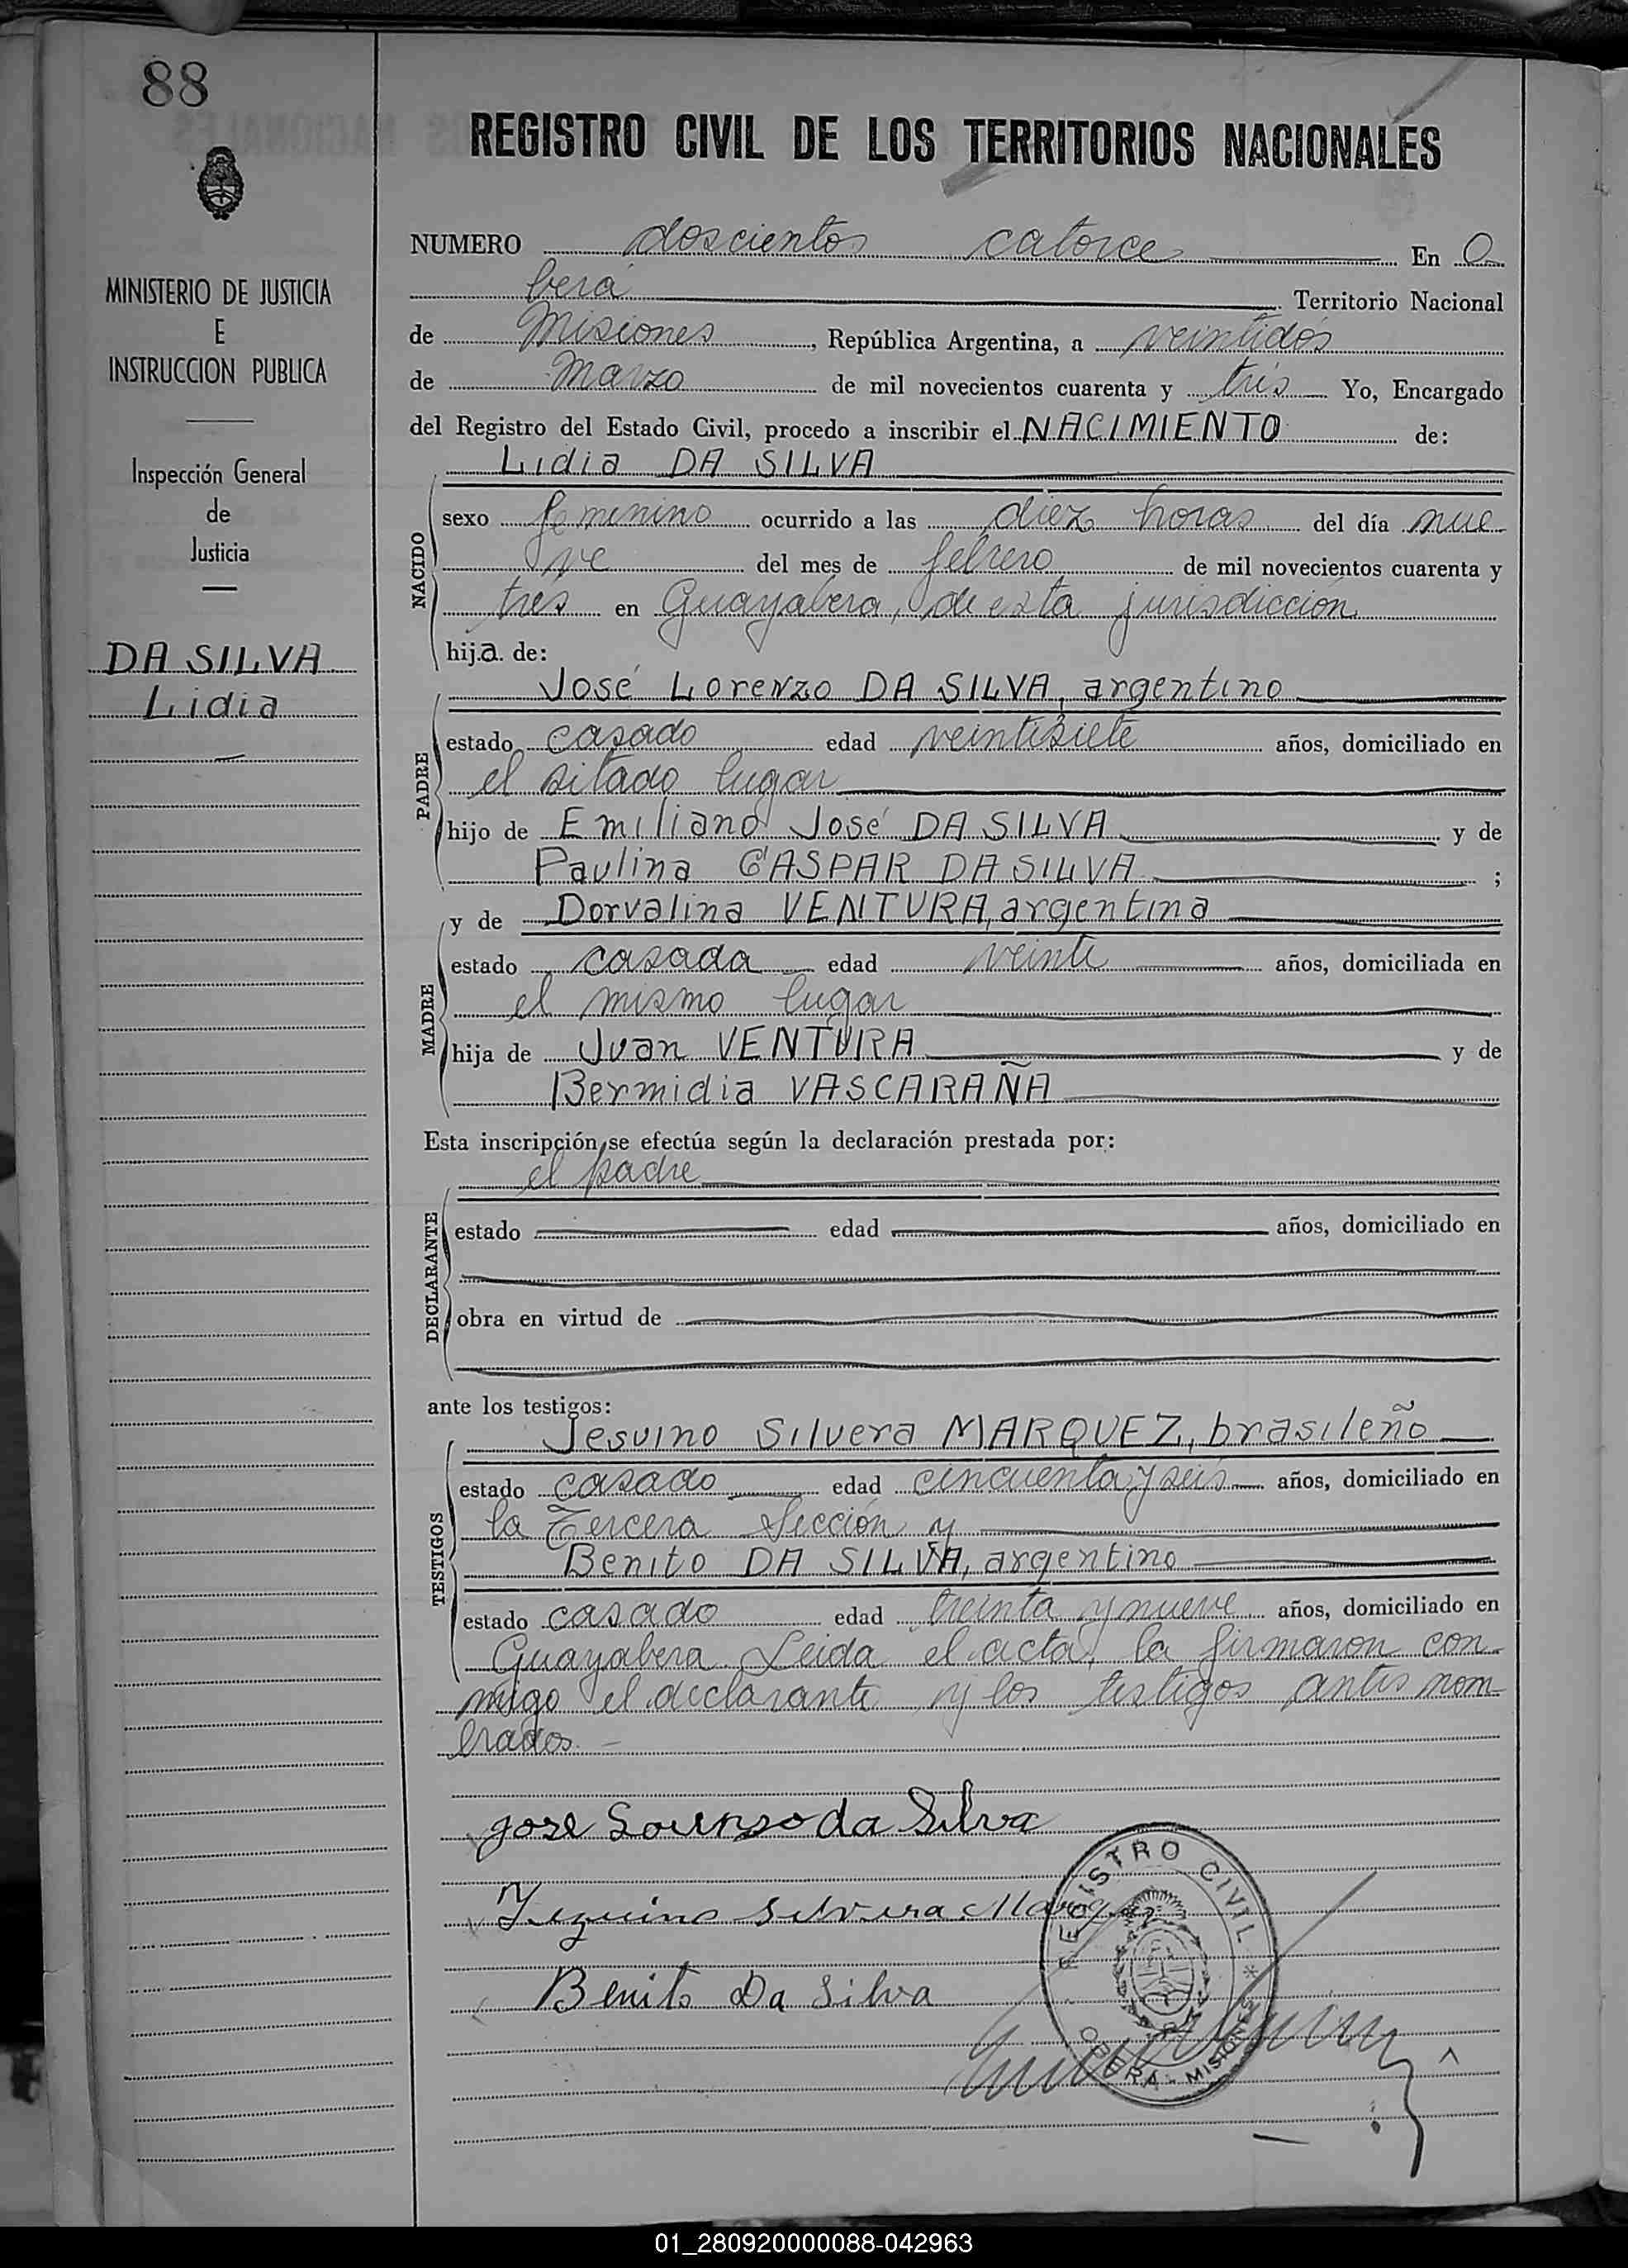 88
REGISTRO CIVIL DE LOS TERRITORIOS NACIONALES
MINISTERIO DE JUSTICIA
E
INSTRUCCION PUBLICA
Inspección General
de
Justicia
DA SILVA
Lidia
NUMERO doscientos catorce En O
berá Territorio Nacional
de Misiones, República Argentina, a veintidós
de Marzo de mil novecientos cuarenta y trés Yo, Encargado
del Registro del Estado Civil, procedo a inscribir el NACIMIENTO de:
Lidia DA SILVA
NACIDO
sexo femenino ocurrido a las diez horas del día nue
ve del mes de febrero de mil novecientos cuarenta y
trés en Guayabera, de esta jurisdicción
hija de:
José Lorenzo DA SILVA, argentino
PADRE
estado casado edad veintisiete años, domiciliado en
el sitado lugar
hijo de Emiliano José DA SILVA y de
Paulina GASPAR DA SILVA ;
y de Dorvalina VENTURA, argentina
MADRE
estado casada edad veinte años, domiciliada en
el mismo lugar
hija de Juan VENTURA y de
Bermidia VASCARAÑA
Esta inscripción se efectúa según la declaración prestada por:
el padre
DECLARANTE
estado edad años, domiciliado en
obra en virtud de
ante los testigos:
Jesuino Silvera MARQUEZ, brasileño
TESTIGOS
estado casado edad cincuenta y seis años, domiciliado en
la Tercera Sección y
Benito DA SILVA, argentino
estado casado edad treinta y nueve años, domiciliado en
Guayabera. Leida el acta, la firmaron con
migo el declarante y los testigos antes nom
brados.-
jose Lourenso da Silva
Jezuino Silveira Marquez
Benito Da Silva
REGISTRO CIVIL * OBERA - MISIONES
01_280920000088-042963